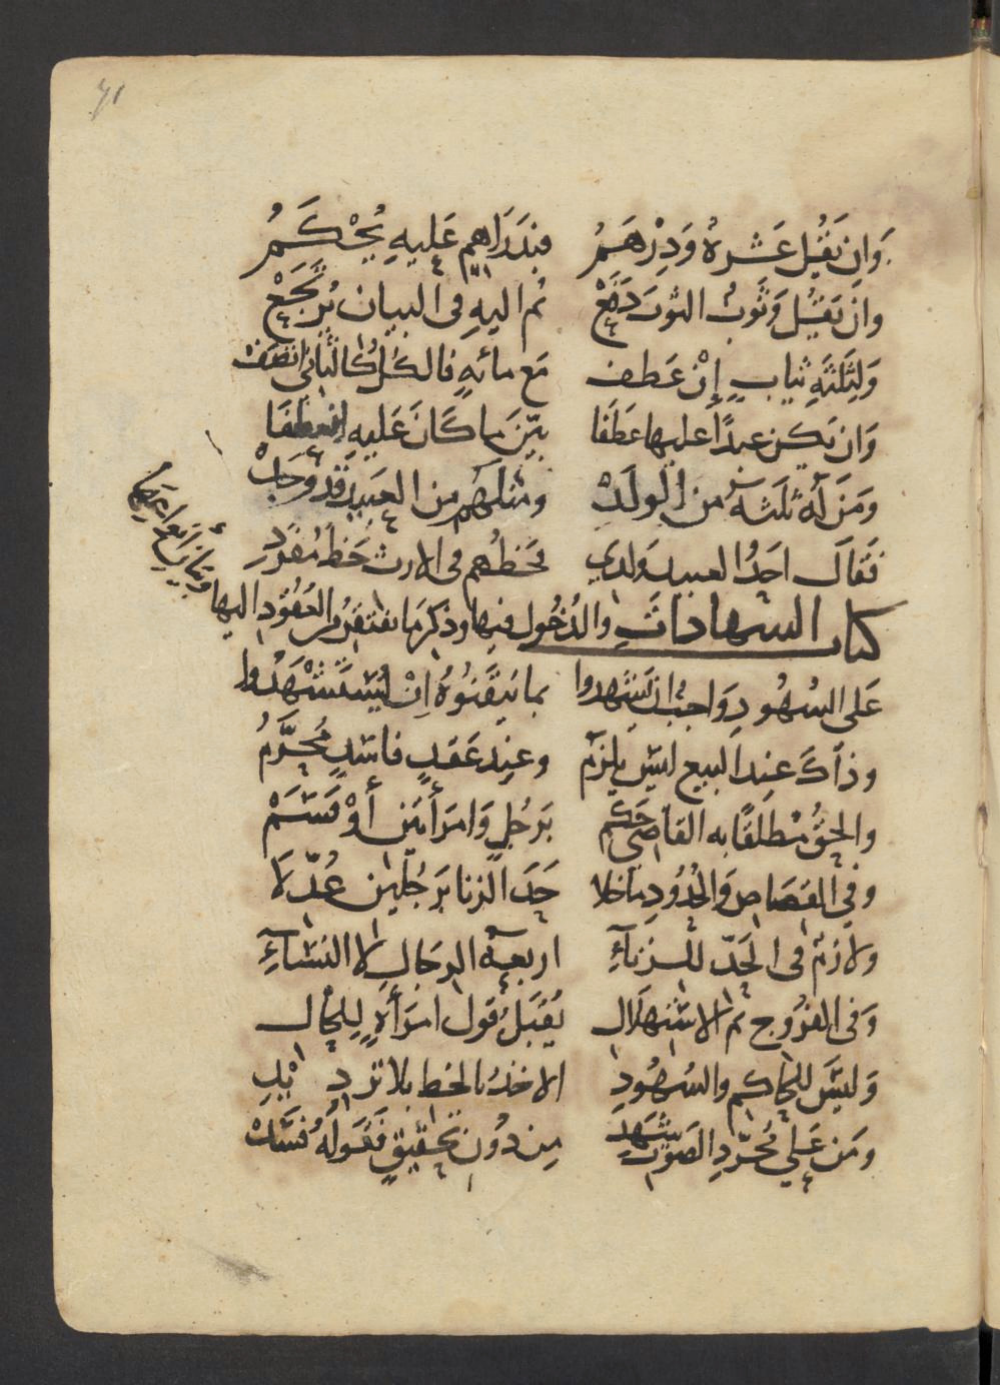 71
وَان يَقُل عَشرهُ وَدِرْهَمُ فبدَرَاهم عَليهِ يُحْكَمُ
وان يَقُل وَثَوبُ الثوبَ دَفَعْ ثم اليهِ فى البيان يُرْجَعْ
وَلِثَلثَةِ ثيابٍ إِنْ عَطف مَع مائه فالكُل كالثانى اتصَفْ
وَان يَكن عبدًا عليها عَطَفَا بيّنَ ما كَانَ عَليهِ انعطفَا
وَمَن لَهُ ثلَثهٌ من الولَدْ ومثلهُم من العَبيد قد وَجَدْ
فَقالَ احَدُ العبيد وَلدي فحَظهُم فى الارث حَظ مُفرَدِ
كتاب الشهادَاتِ والدُخُول فيها وذكر مَا يفتقرُ من العُقُود اليها
عَلى الشُهُودِ وَاجبُ ان يَشهدوا بما تيَقَّنُوهُ اِنْ يُسْتَشْهَدُوا
وذاكَ عِند البيع ليسَ يلزَم وعندِ عَقدٍ فاسَدٍ مُحَرَّمُ
والحَقُ مُطلَقًا به القاضِى حَكم بَرجُلٍ وَامرَأتين أوْ قَسَمْ
وفي القصَاصِ وَالحُدُودِ مَا خلا حَدَ الزنا بَرجُلين عُدّلا
ولازم فى الحَدّ للزناءِ اربعة الرجَالِ لا النسَآءِ
وَفى الفرُوج ثم الاستهلال يُقبَلُ قول امرَأةٍ لِلحَال
وَليسَ للحاكم والشهُودِ الاخذُ بالخط بلا ترديْدِ
وَمَن عَلى مُجَرّدِ الصَوت شَهد مِن دُونِ تحقيقٍ فَقَولُهُ فسَدْ